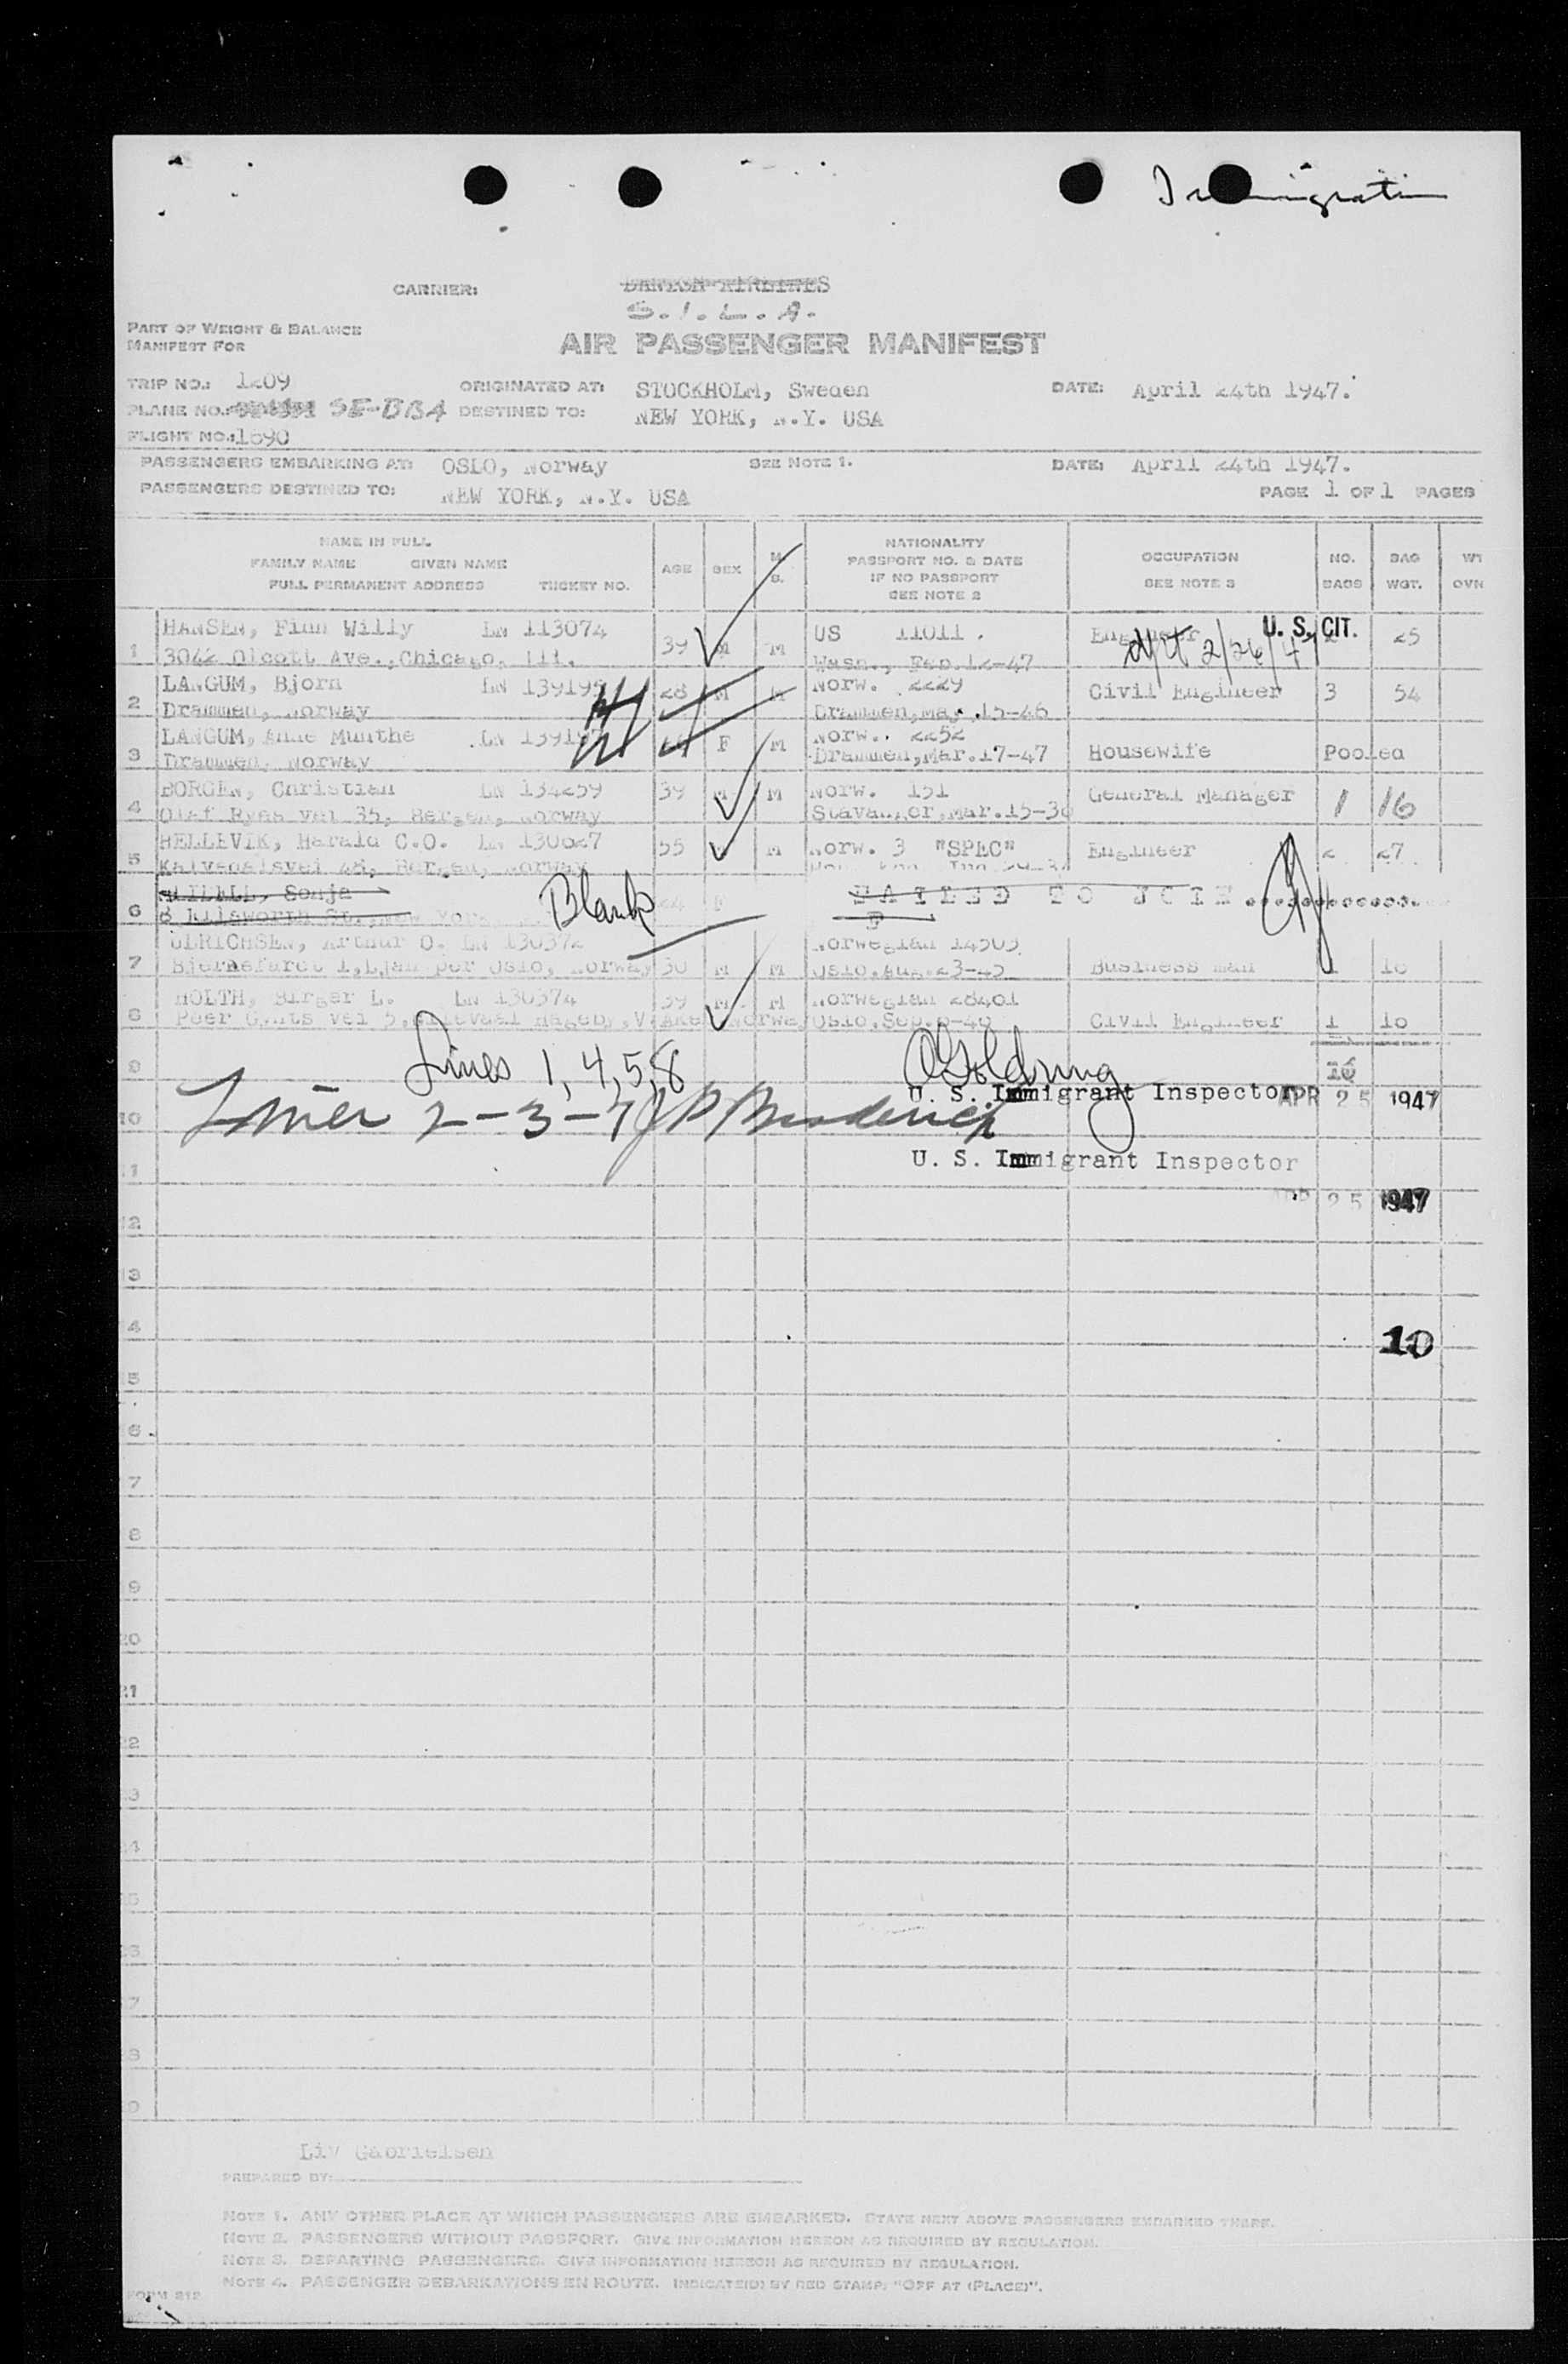 Immigration
CARRIER: DANISH AIRLINES
S.I.L.A.
PART OF WEIGHT & BALANCE
MANIFEST FOR
AIR PASSENGER MANIFEST
TRIP NO.: 1209 ORIGINATED AT: STOCKHOLM, Sweden DATE: April 24th 1947.
PLANE NO.: SE-BBA DESTINED TO: NEW YORK, N.Y. USA
FLIGHT NO.: 1690
PASSENGERS EMBARKING AT: OSLO, Norway SEE NOTE 1. DATE: April 24th 1947.
PASSENGERS DESTINED TO: NEW YORK, N.Y. USA PAGE 1 OF 1 PAGES
NAME IN FULL
FAMILY NAME GIVEN NAME
FULL PERMANENT ADDRESS TICKET NO.
AGE SEX M. S.
NATIONALITY
PASSPORT NO. & DATE
IF NO PASSPORT
SEE NOTE 2
OCCUPATION
SEE NOTE 3
NO.
BAGS
BAG
WGT.
WT
OVN
HANSEN, Finn Willy LN 113074 US 11011 . Engineer U. S. CIT.
1 3042 Olcott Ave., Chicago, Ill. 39 M M Wash., Feb.12-47 2/26/47 25
LANGUM, Bjorn LN 28 M M Norw. 2229
2 Drammen, Norway Drammen, 15-46 Civil Engineer 3 54
LANGUM, Anne Munthe LN F M Norw. 2252
3 Drammen, Norway Drammen, Mar.17-47 Housewife Pooled
BORGEN, Christian LN 134259 39 M M Norw. 151
4 Olaf Ryes vei 35, Bergen, Norway Stavanger, Mar.15-3 General Manager 1 16
HELLEVIK, Harald C.O. LN 130627 55 M Norw. 3 "SPEC"
5 Kalvedalsvei 48, Bergen, Norway Engineer 2 27
Sonja F FAILED TO JOIN
6 8 Ellsworth St., New York Blank
ULRICHSEN, Arthur O. LN 130372 Norwegian 14503
7 Bjernefaret 1, Ljan per Oslo, Norway 30 M M Oslo, Aug.23-45 Business man 1 10
HOLTH, Birger L. LN 130374 39 M M Norwegian 28401
8 Peer Gynts vei 5, Hageby, V. Aker Norway Oslo, Sep. Civil Engineer 1 10
9 Lines 1, 4, 5, 8 Goldring
U. S. Immigrant Inspector APR 25 1947
10 Lines 2-3-7 JP Broderick
11 U. S. Immigrant Inspector
APR 25 1947
12
13
4 10
5
6
7
8
9
20
21
2
3
4
5
26
7
8
9
Liv Gabrielsen
PREPARED BY:
NOTE 1. ANY OTHER PLACE AT WHICH PASSENGERS ARE EMBARKED. STATE NEXT ABOVE PASSENGERS EMBARKED THERE.
NOTE 2. PASSENGERS WITHOUT PASSPORT. GIVE INFORMATION HEREON AS REQUIRED BY REGULATION.
NOTE 3. DEPARTING PASSENGERS. GIVE INFORMATION HEREON AS REQUIRED BY REGULATION.
NOTE 4. PASSENGER DEBARKATIONS EN ROUTE. INDICATE(D) BY RED STAMP: "OFF AT (PLACE)".